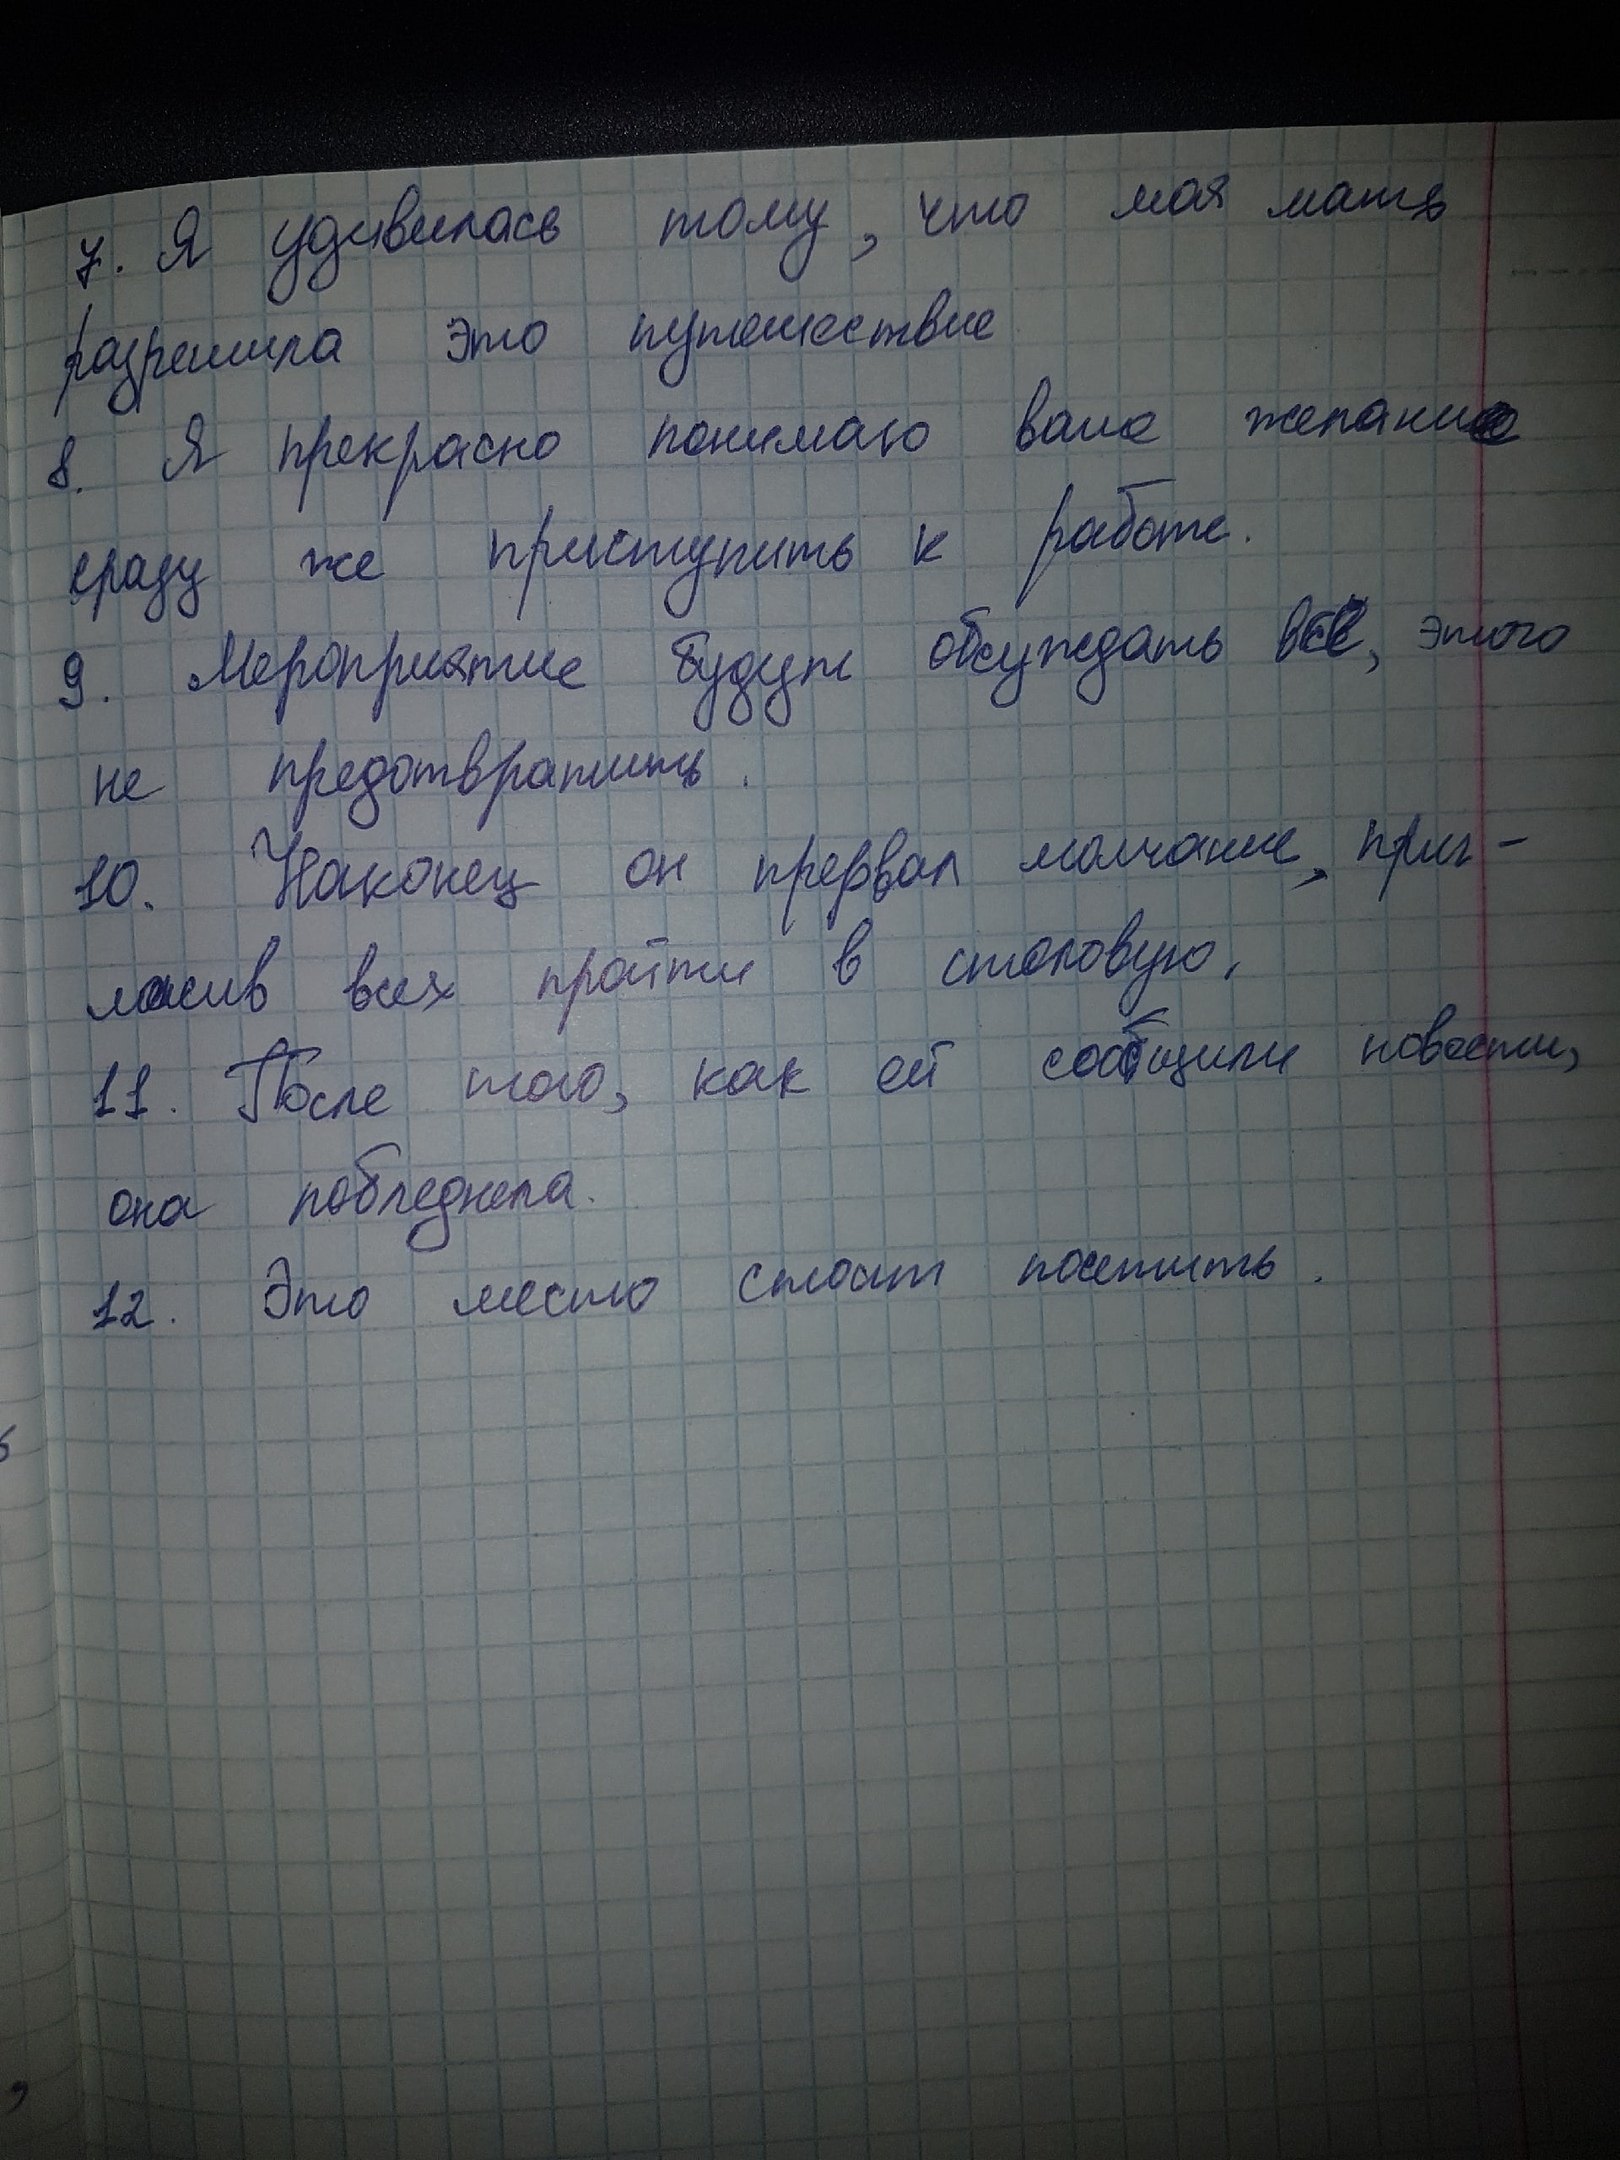 7. Я удивилась тому, что моя мать
разрешила это путешествие
8. Я прекрасно понимаю ваше желание
сразу же приступить к работе.
9. Мероприятие будут обсуждать все, этого
не предотвратить.
10. Наконец он прервал молчание, приг-
ласив всех пройти в столовую.
11. После того, как ей сообщили новости,
она побледнела.
12. Это место стоит посетить.